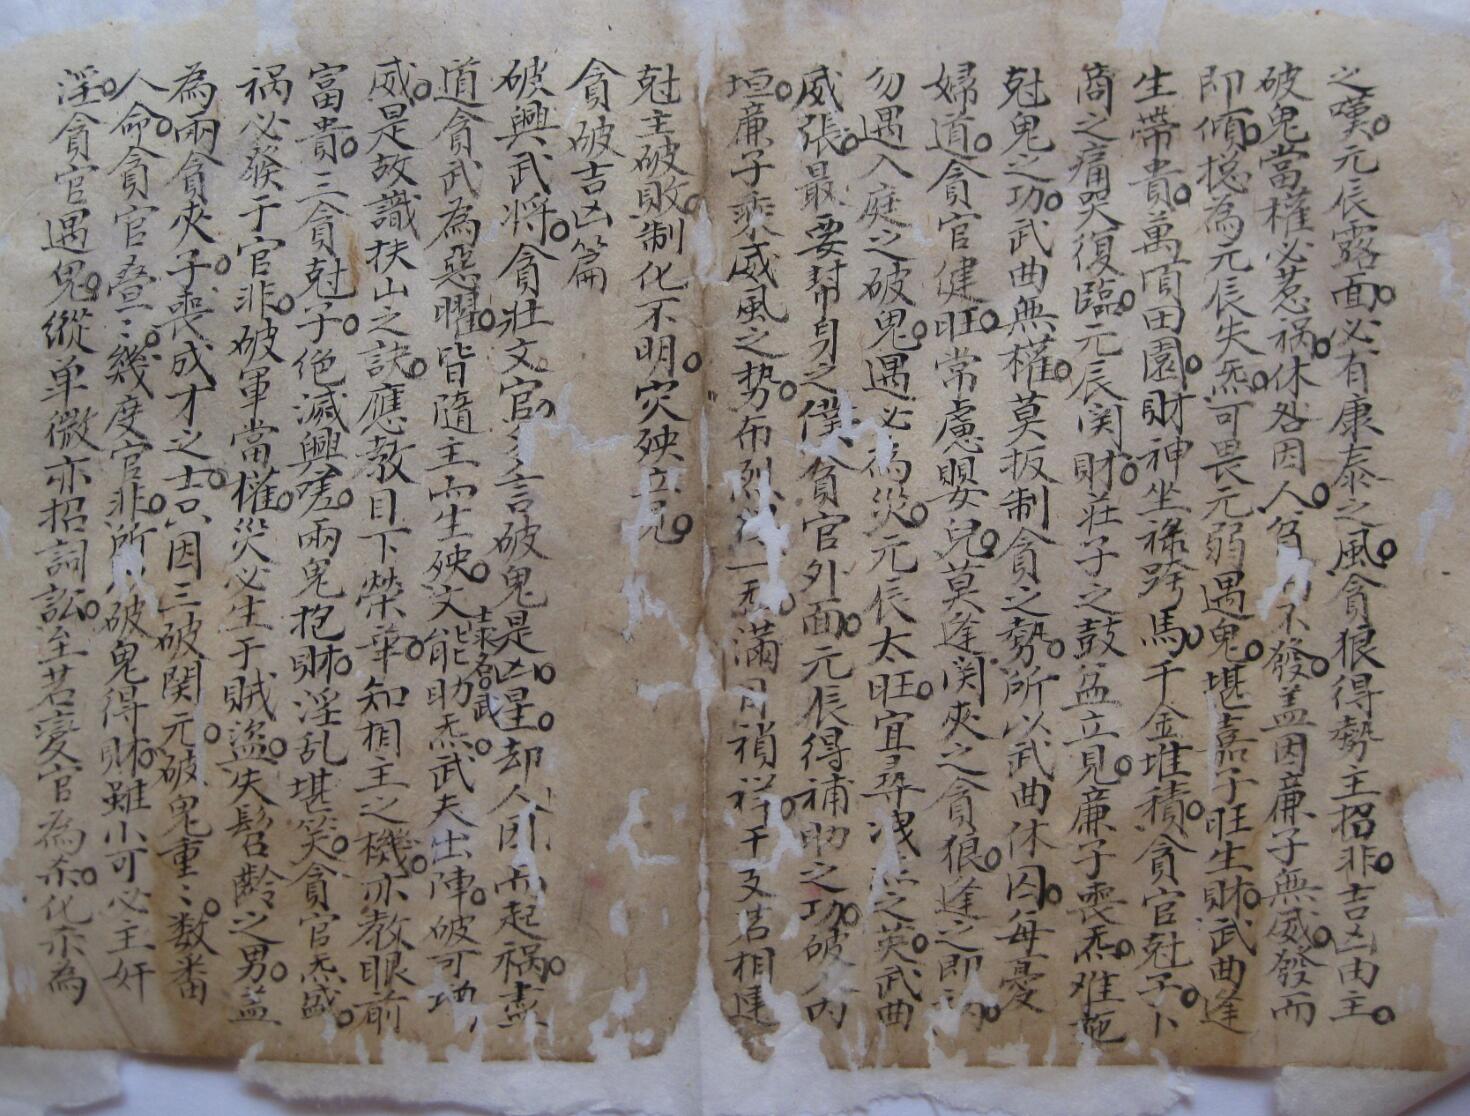 之嘆。元辰露面。必有康泰之風。貪狼得勢主招非。吉凶由主。
破鬼當權必惹禍。休咎因人。不發。盖因廉子無威。發而
即傾。揔為元辰失炁。可畏元弱遇鬼。堪嘉子旺生財。武曲逢
生帶貴。萬頃田園。財神坐祿跨馬。千金堆積。貪官尅子。卜
商之痛哭復臨。元辰関財。莊子之鼓盆立見。廉子喪炁。难施
尅鬼之功。武曲無權。莫扳制貪之勢。所以武曲休囚。每憂
婦道。貪官健旺。常慮嬰兒。莫逢関夾之貪狼。逢之即
勿遇入庭之破鬼。遇必為災。元辰太旺。宜尋洩之英。武曲
威張。最要幇身之僕。貪官外面。元辰得補助之功。破入内
垣。廉子乘威風之势。布烈一炁。滿目禎祥。干支若相連
尅主破敗。制化不明。灾殃立見。
貪破吉凶篇
破興武将。貪壯文官。之言破鬼是凶星。却人因而起禍。盡
道貪武為惡曜。皆隨主而生殃。文能助炁。武夫出陣。破可
威。是故識扶山之訣。應教目下榮華。知相主之機。亦教眼前
富貴。三貪尅子。絕滅興嗟。兩鬼抱財。淫乱堪笑。貪官炁盛。
禍必發于官非。破軍當權。災必生于賊盜。失髫齡之男。盖
為兩貪夾子。喪成才之吉。因三破関元。破鬼重〻。数番
人命。貪官疊〻。幾度官非。所破鬼得財。雖小可必主奸
淫。貪官遇鬼。縱单微亦招詞訟。至若変官為杀。化杀為